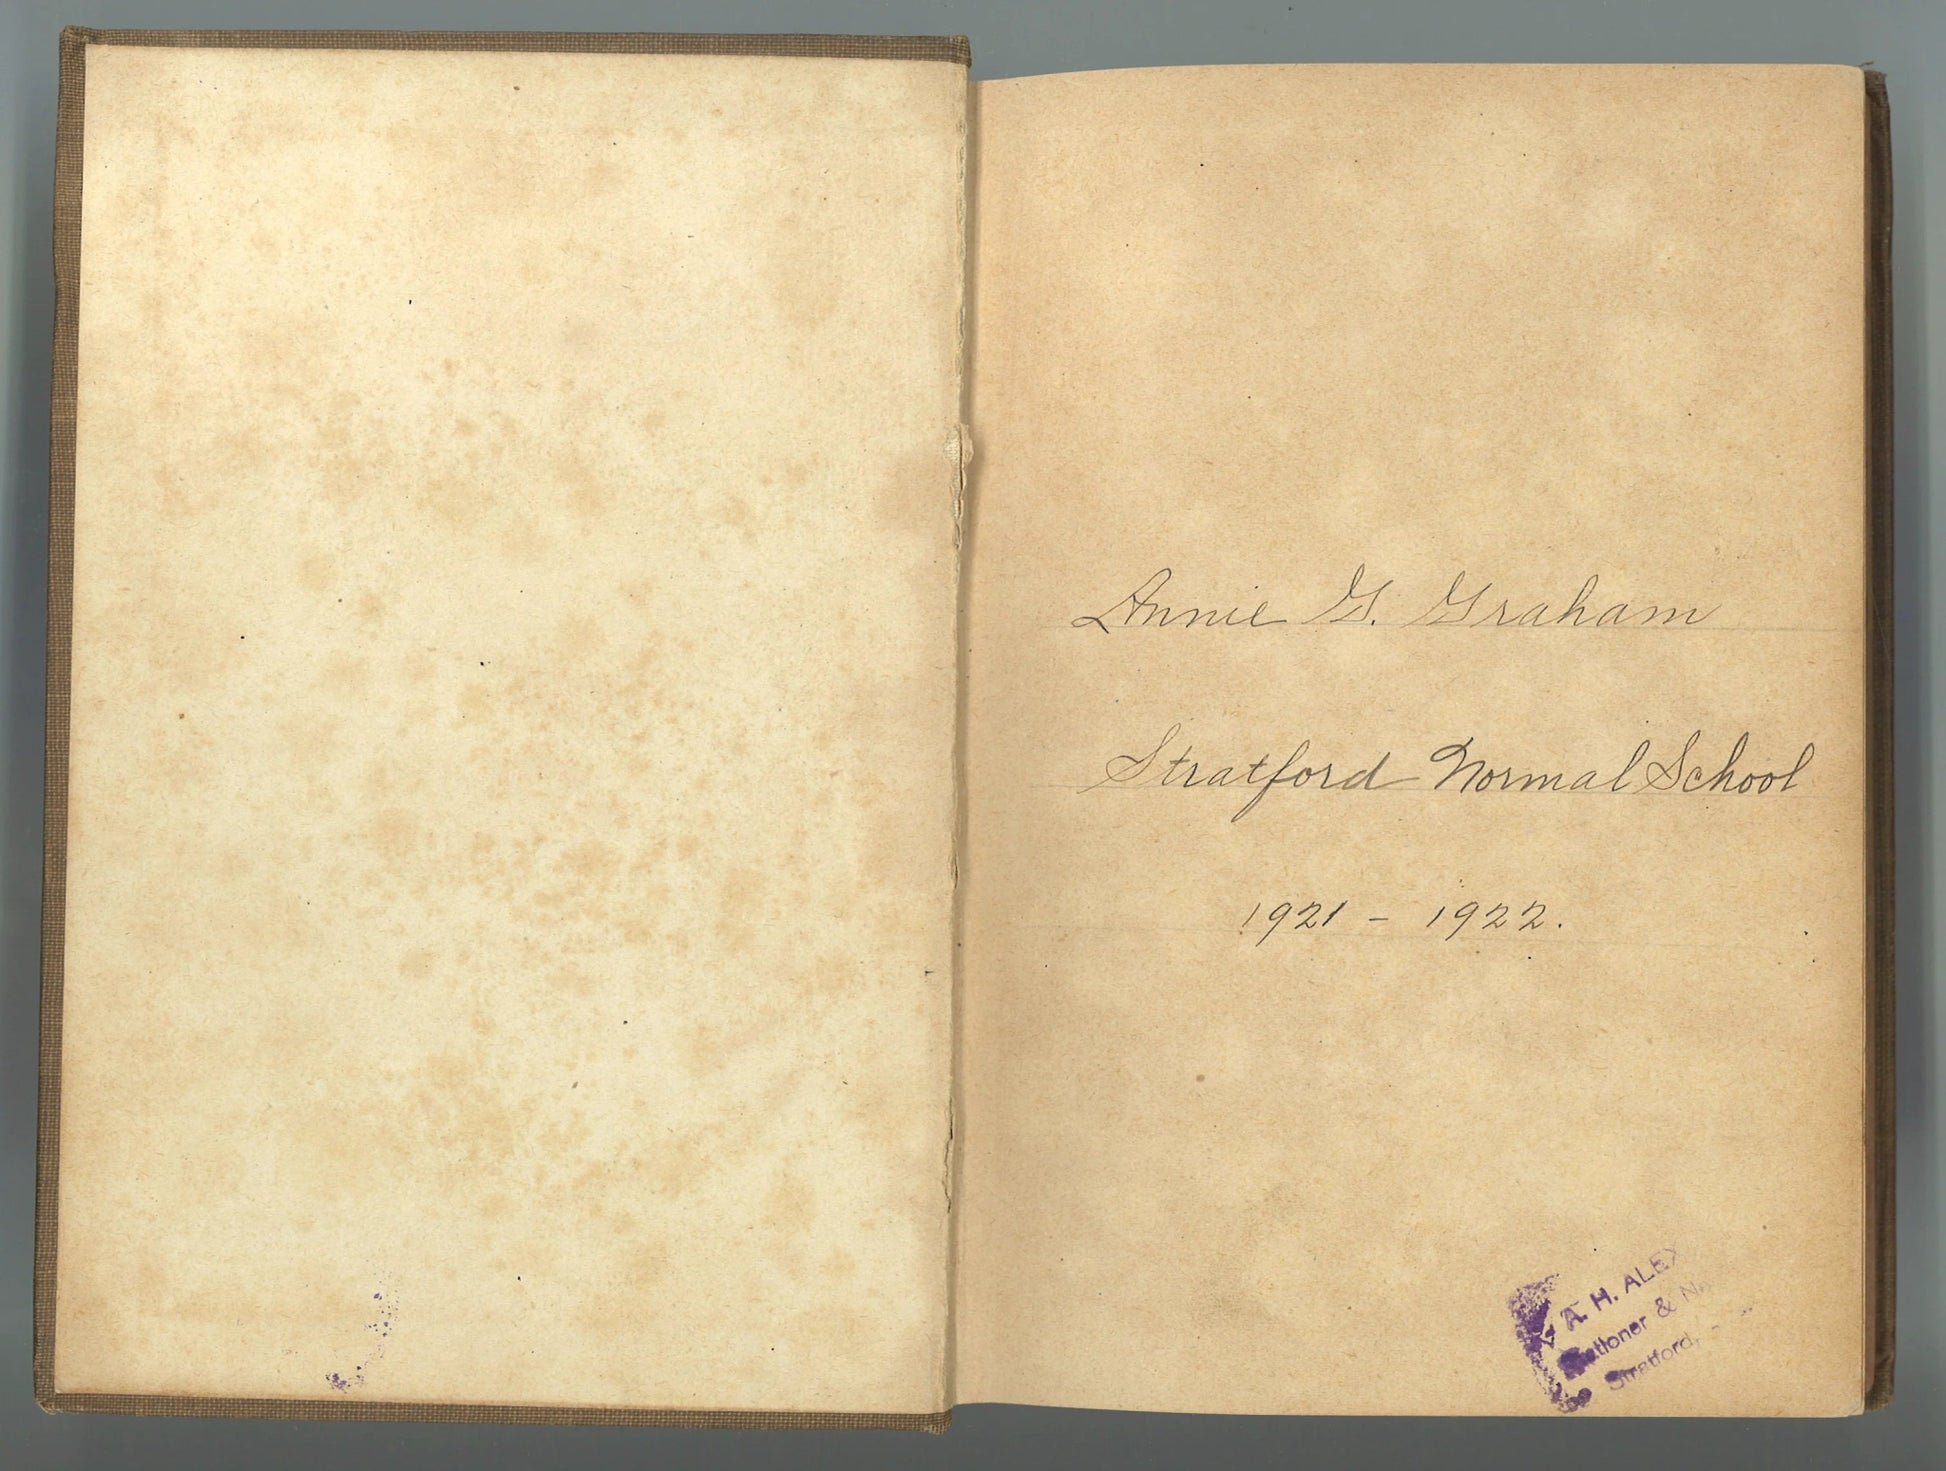 Annie G. Graham
Stratford Normal School
1921 - 1922.
A. H. ALEX
Stationer & N
Stratford,